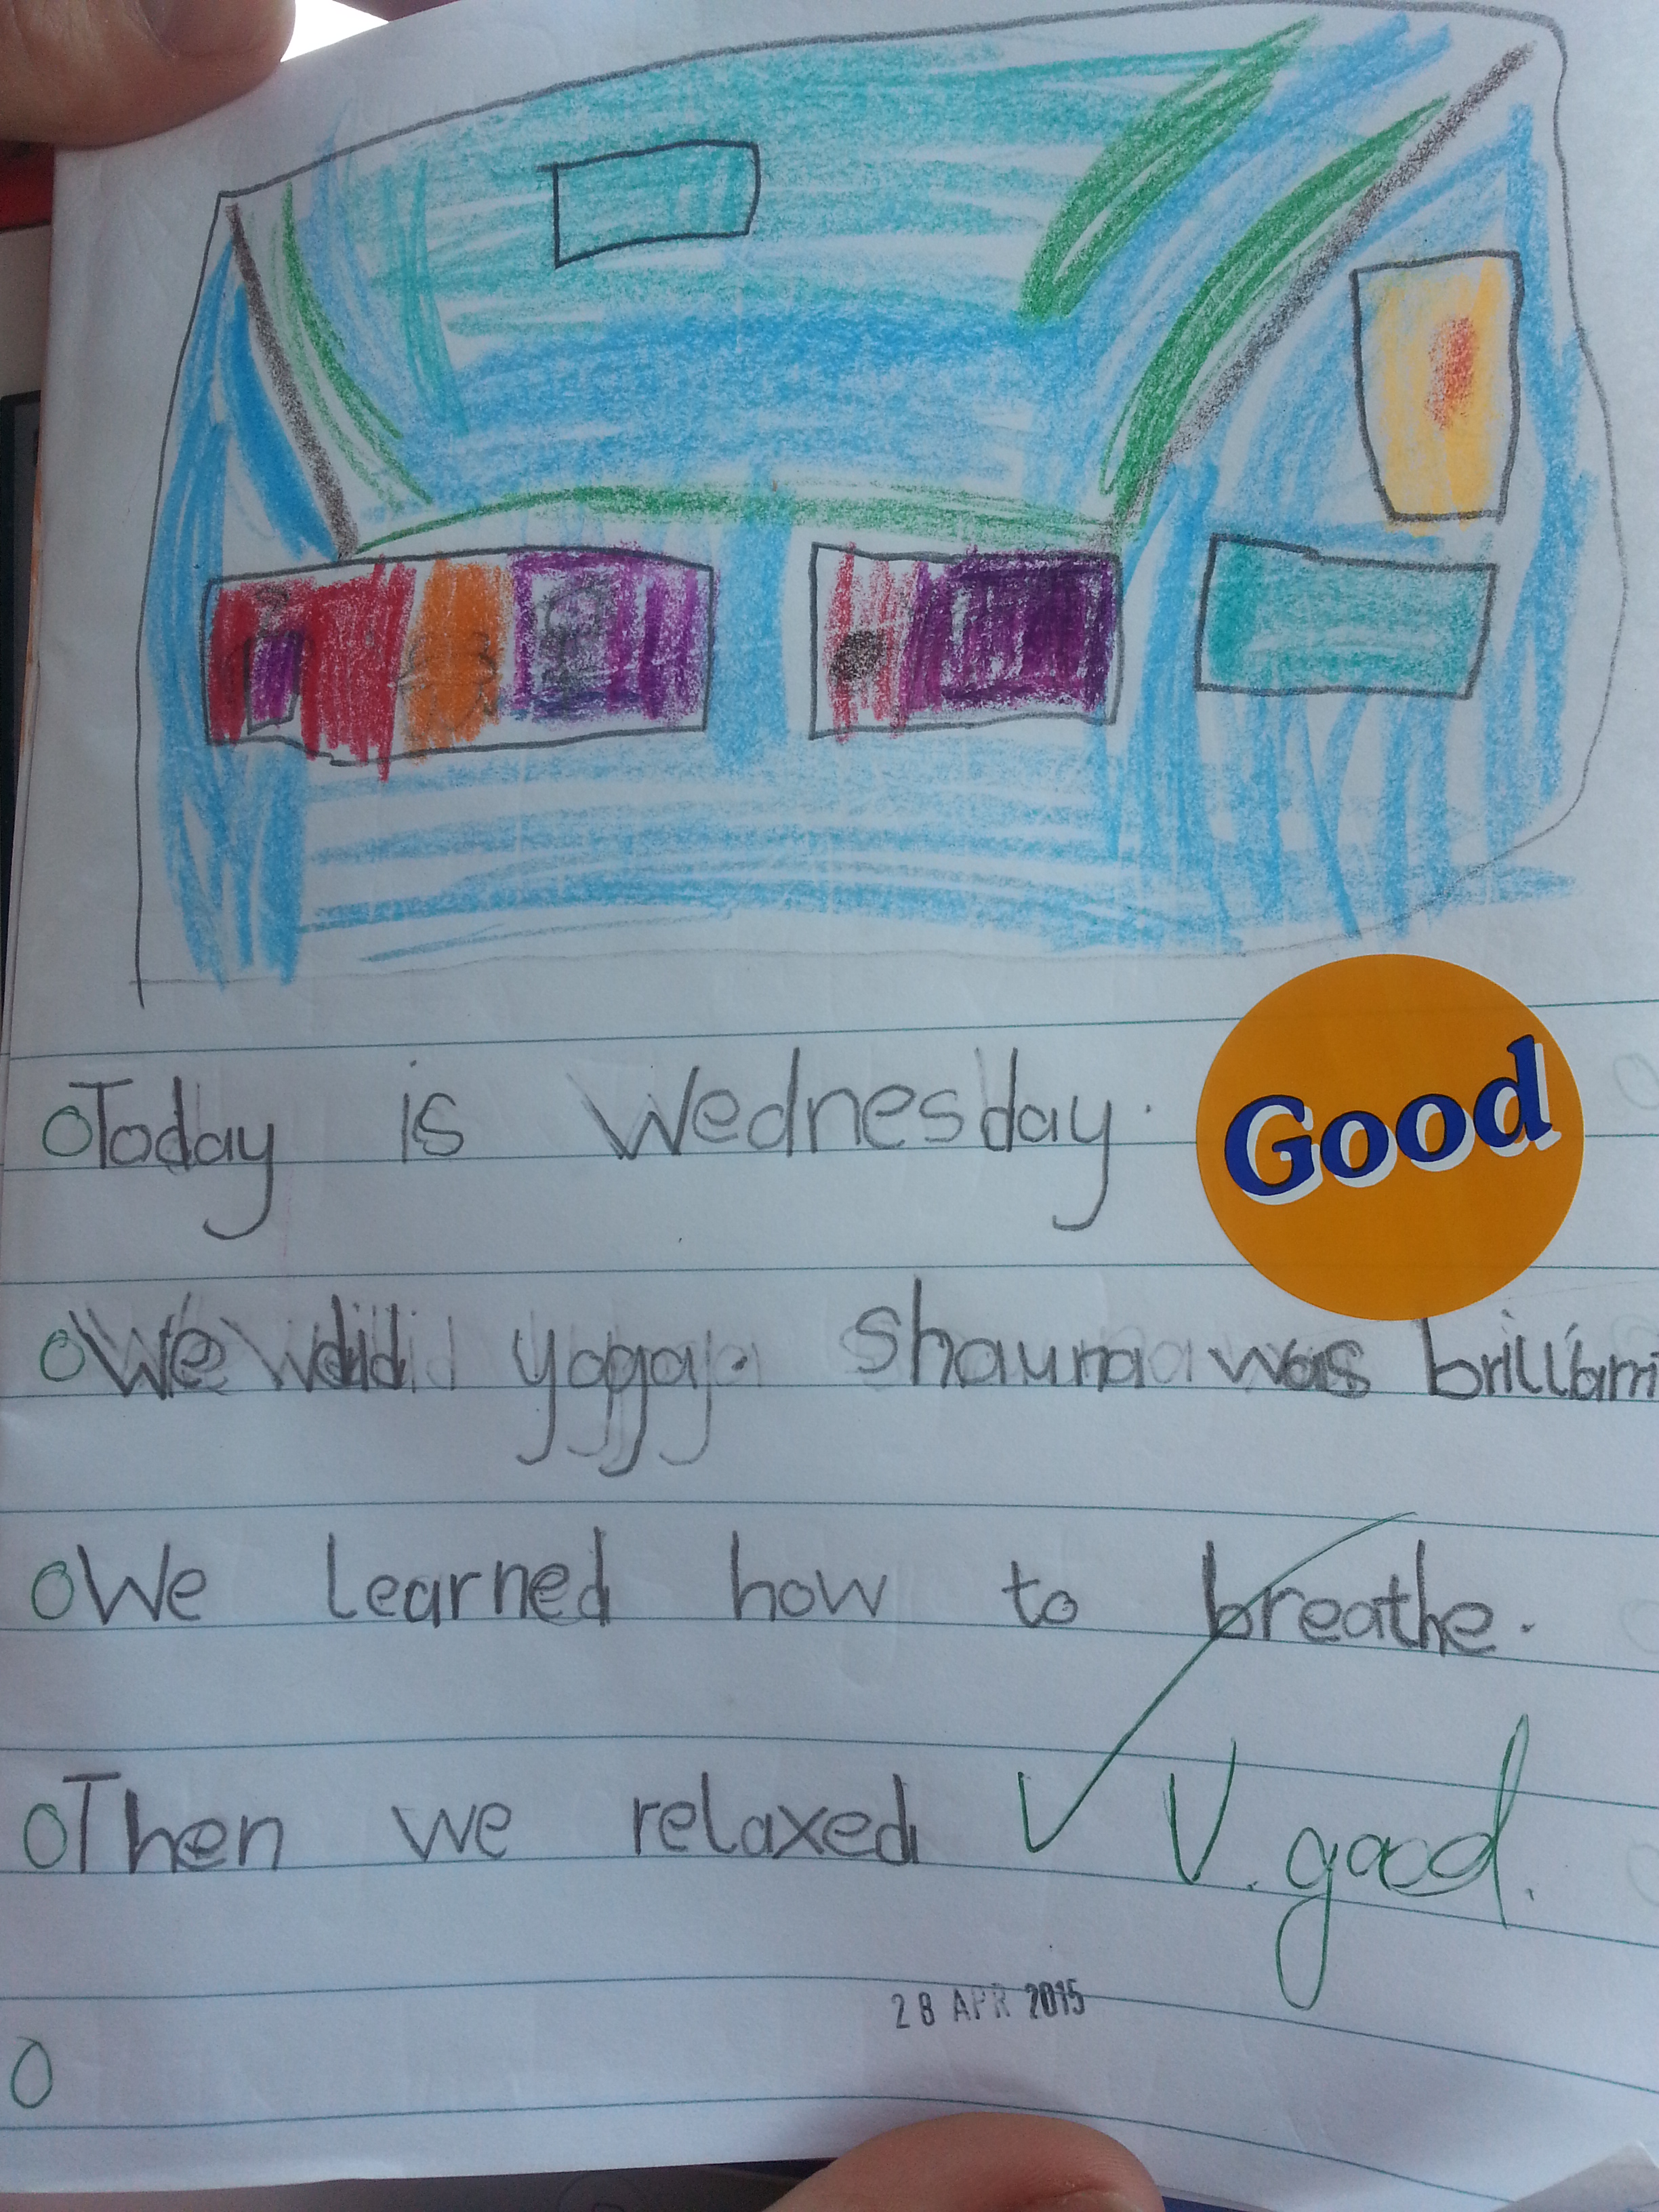 Today is Wednesday.
Good
We did yoga. Shauna was brilliant
We learned how to breathe.
Then we relaxed
V. good.
28 APR 2015